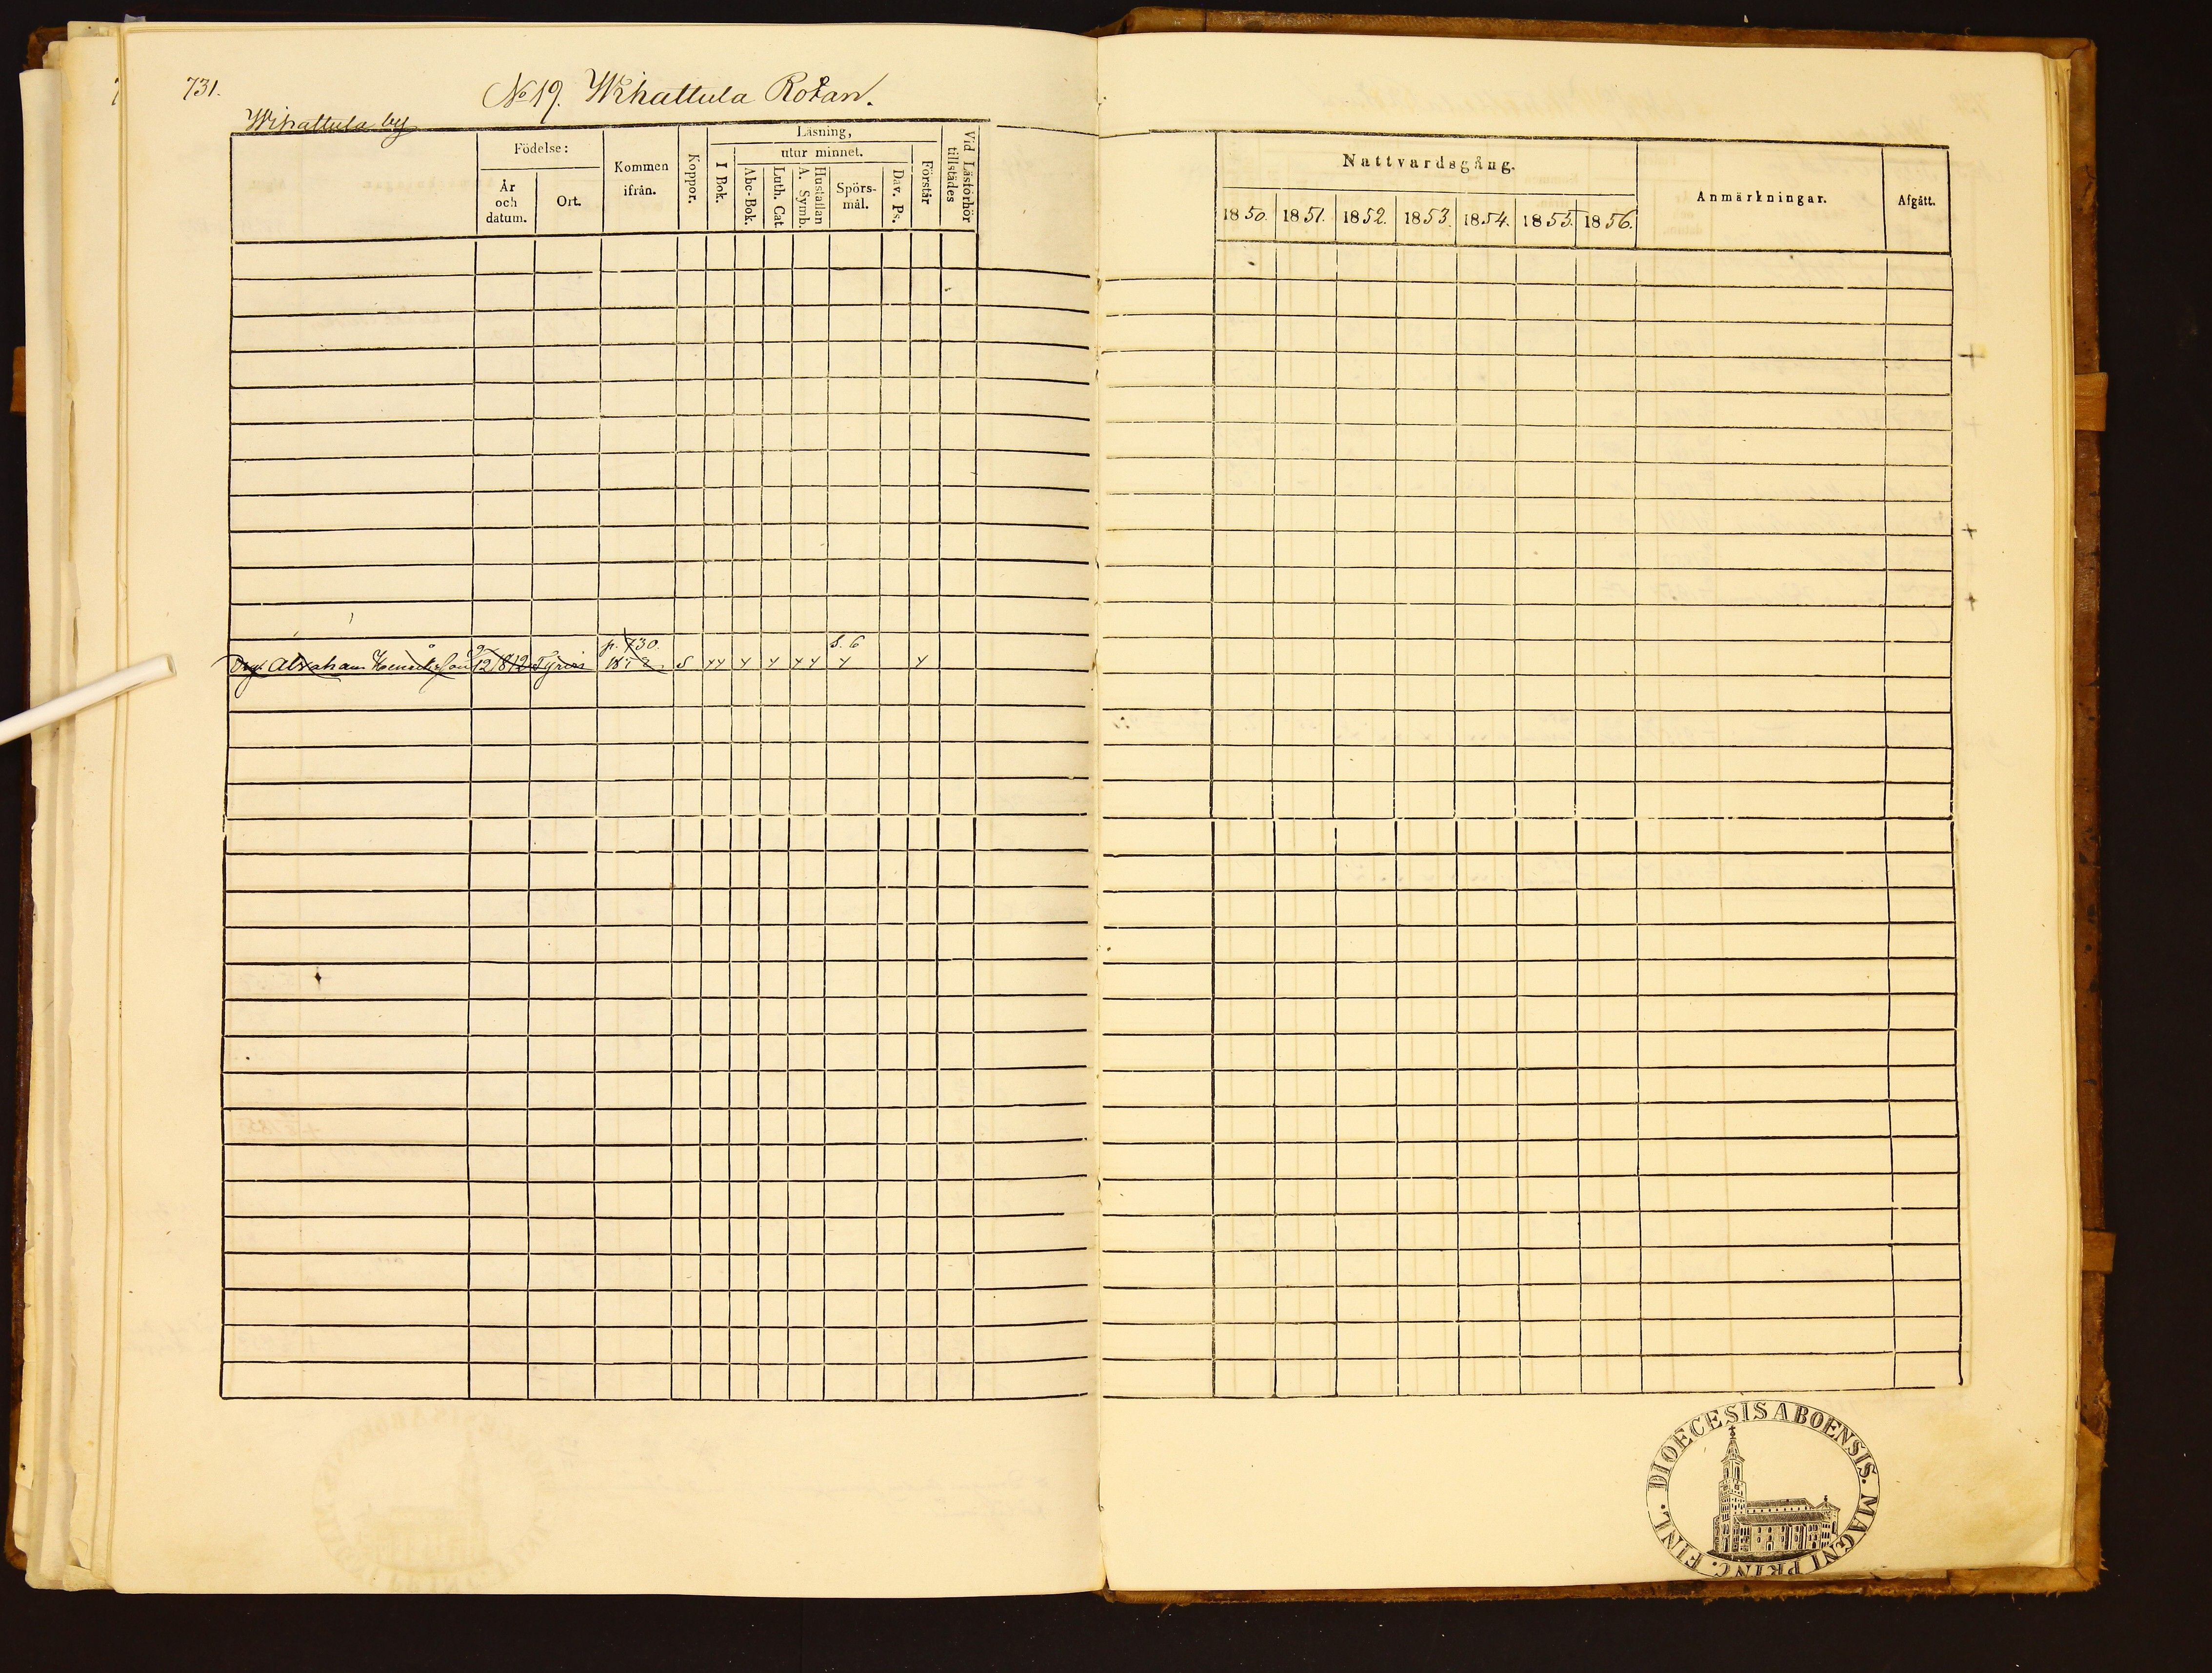 731.
No 19. Wihattula Rotan.
Wihattula by
Födelse:
År och datum.
Ort.
Kommen ifrån.
Koppor.
Läsning,
I Bok.
utur minnet.
Abc-Bok.
Luth. Cat.
Hustaflan A. Symb.
Spörs-mål.
Dav. Ps.
Förstår
Vid Läsförhör tillstädes
Nattvardsgång.
1850. 1851. 1852. 1853. 1854. 1855. 1856.
Anmärkningar.
Afgått.
p. 730. s. 6
Drg Abraham Henriksson 12 1812
DIOECESIS ABOENSIS. MAGNI PRINC. FINL.